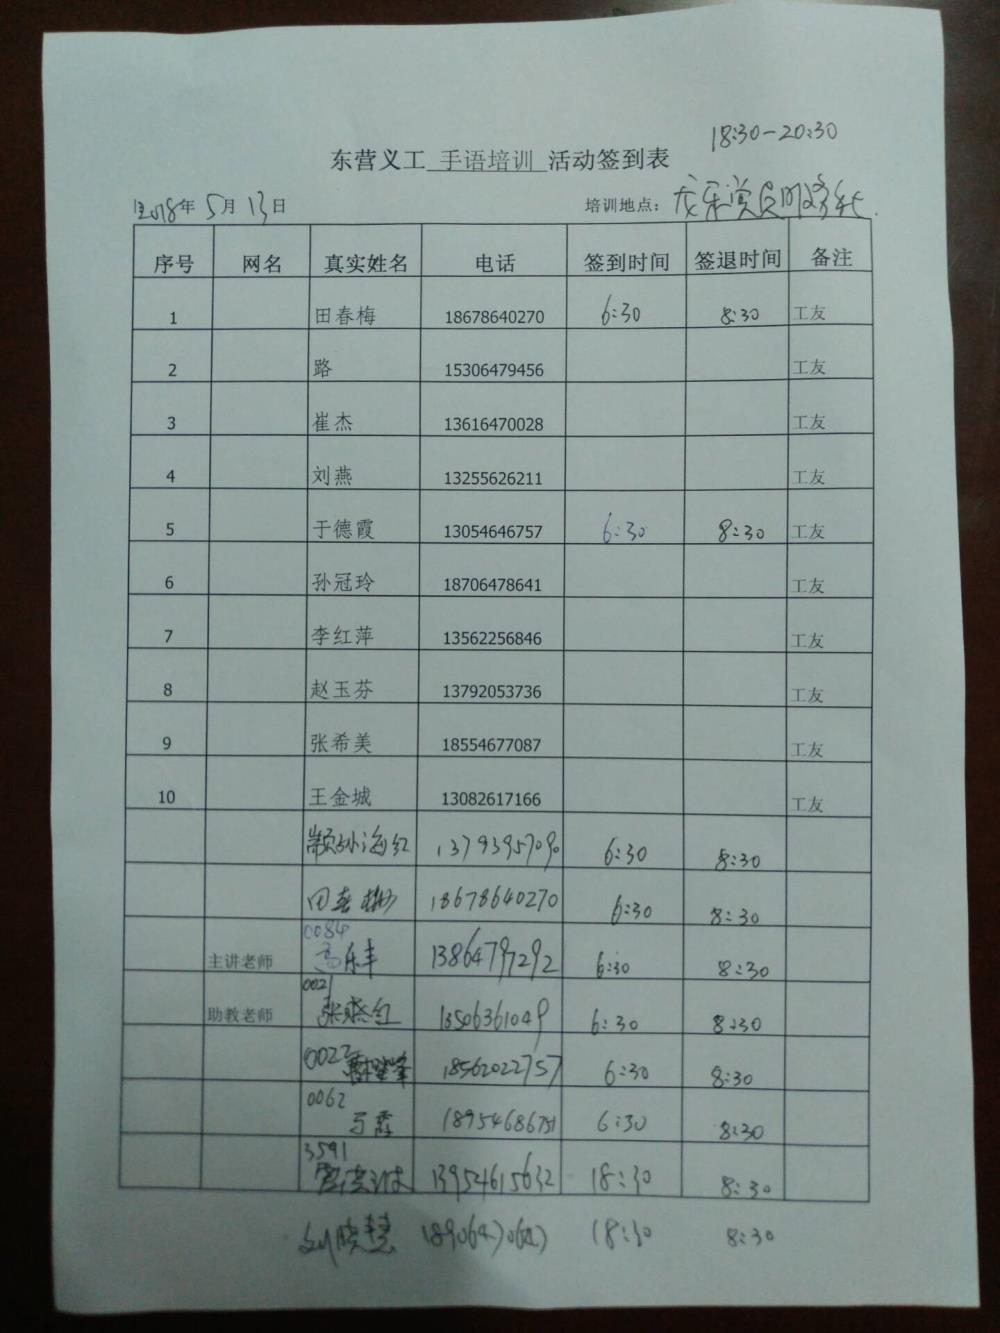 18:30-20:30
东营义工 手语培训 活动签到表
2018年 5月 13日 培训地点：
序号 网名 真实姓名 电话 签到时间 签退时间 备注
1 田春梅 18678640270 6:30 8:30 工友
2 路 15306479456 工友
3 崔杰 13616470028 工友
4 刘燕 13255626211 工友
5 于德霞 13054646757 6:30 8:30 工友
6 孙冠玲 18706478641 工友
7 李红萍 13562256846 工友
8 赵玉芬 13792053736 工友
9 张希美 18554677087 工友
10 王金城 13082617166 工友
海红 13793957090 6:30 8:30
田春梅 18678640270 6:30 8:30
主讲老师 0084 高乐丰 13864797292 6:30 8:30
助教老师 0021 张晓红 13506361049 6:30 8:30
0022 18562022757 6:30 8:30
0062 18954686751 6:30 8:30
3591 13954615632 18:30 8:30
刘晓慧 18:30 8:30